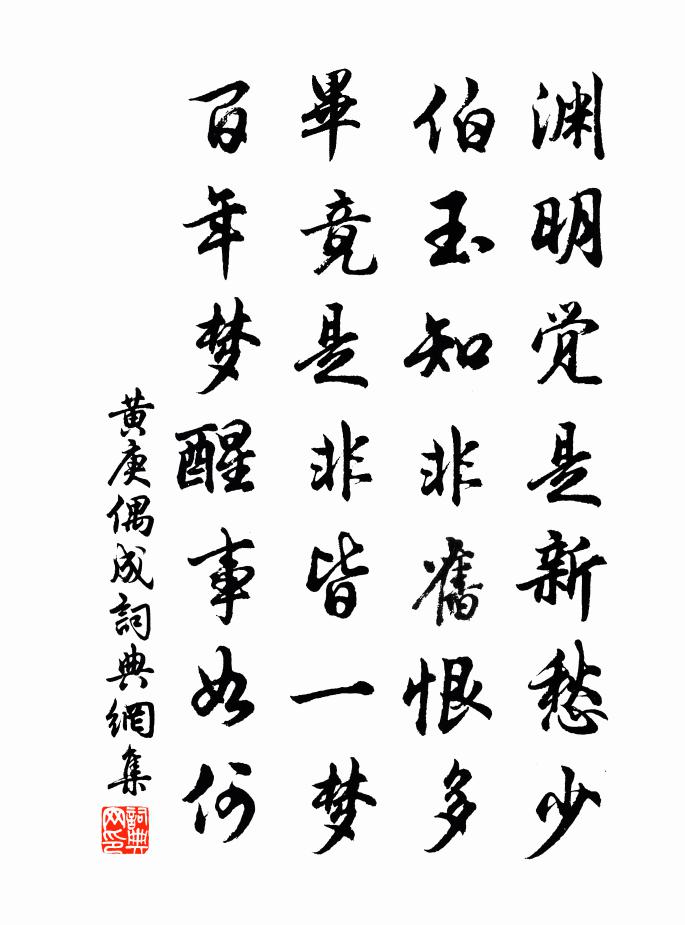 渊明觉是新愁少
伯玉知非舊恨多
畢竟是非皆一梦
百年梦醒事如何
黄庚偶成詞典網集
詞典网印